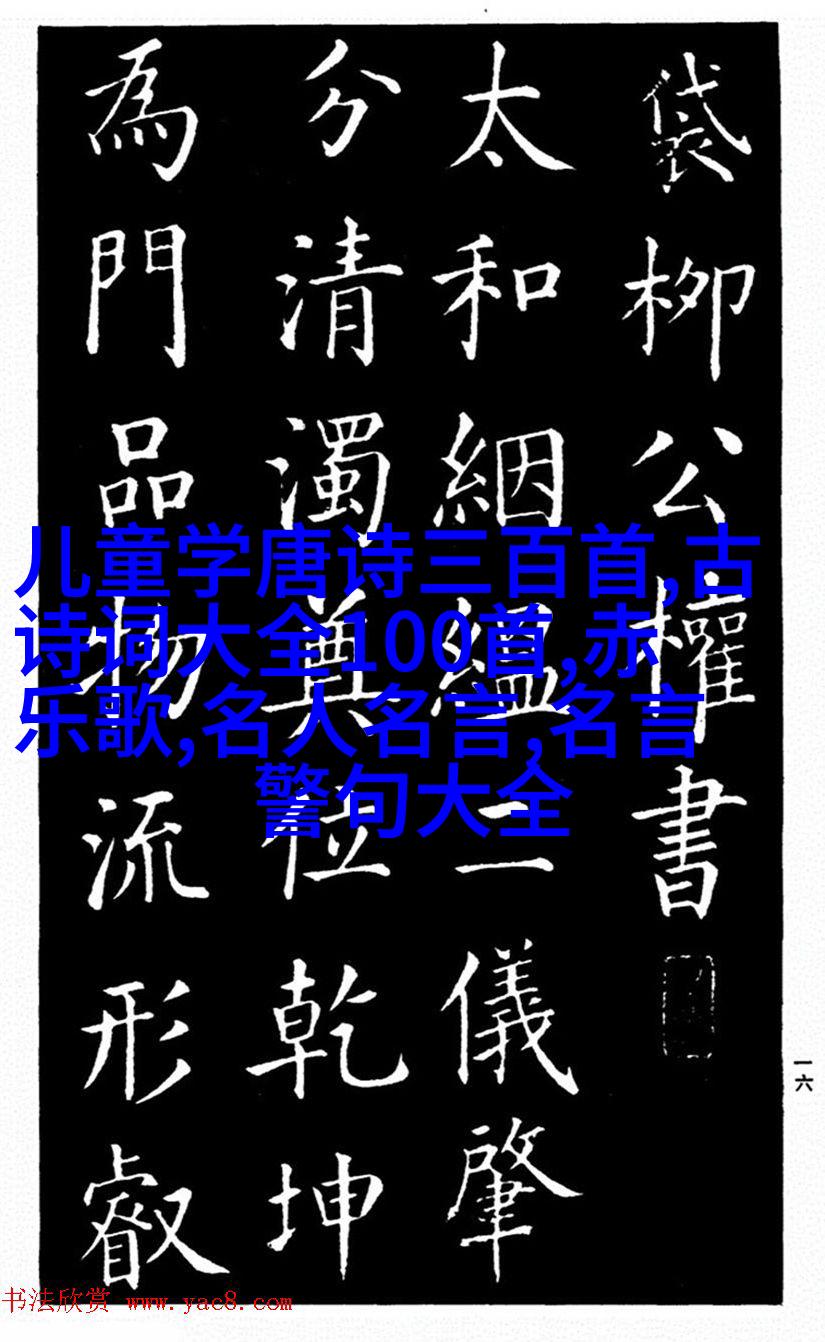 袋柳公權書
太和絪緼二儀肇
分清濁奠位乾坤
為門品物流形叡
一六
儿童学唐诗三百首,古
诗词大全100首,赤
乐歌,名人名言,名言
警句大全
书法欣赏 www.yac8.com